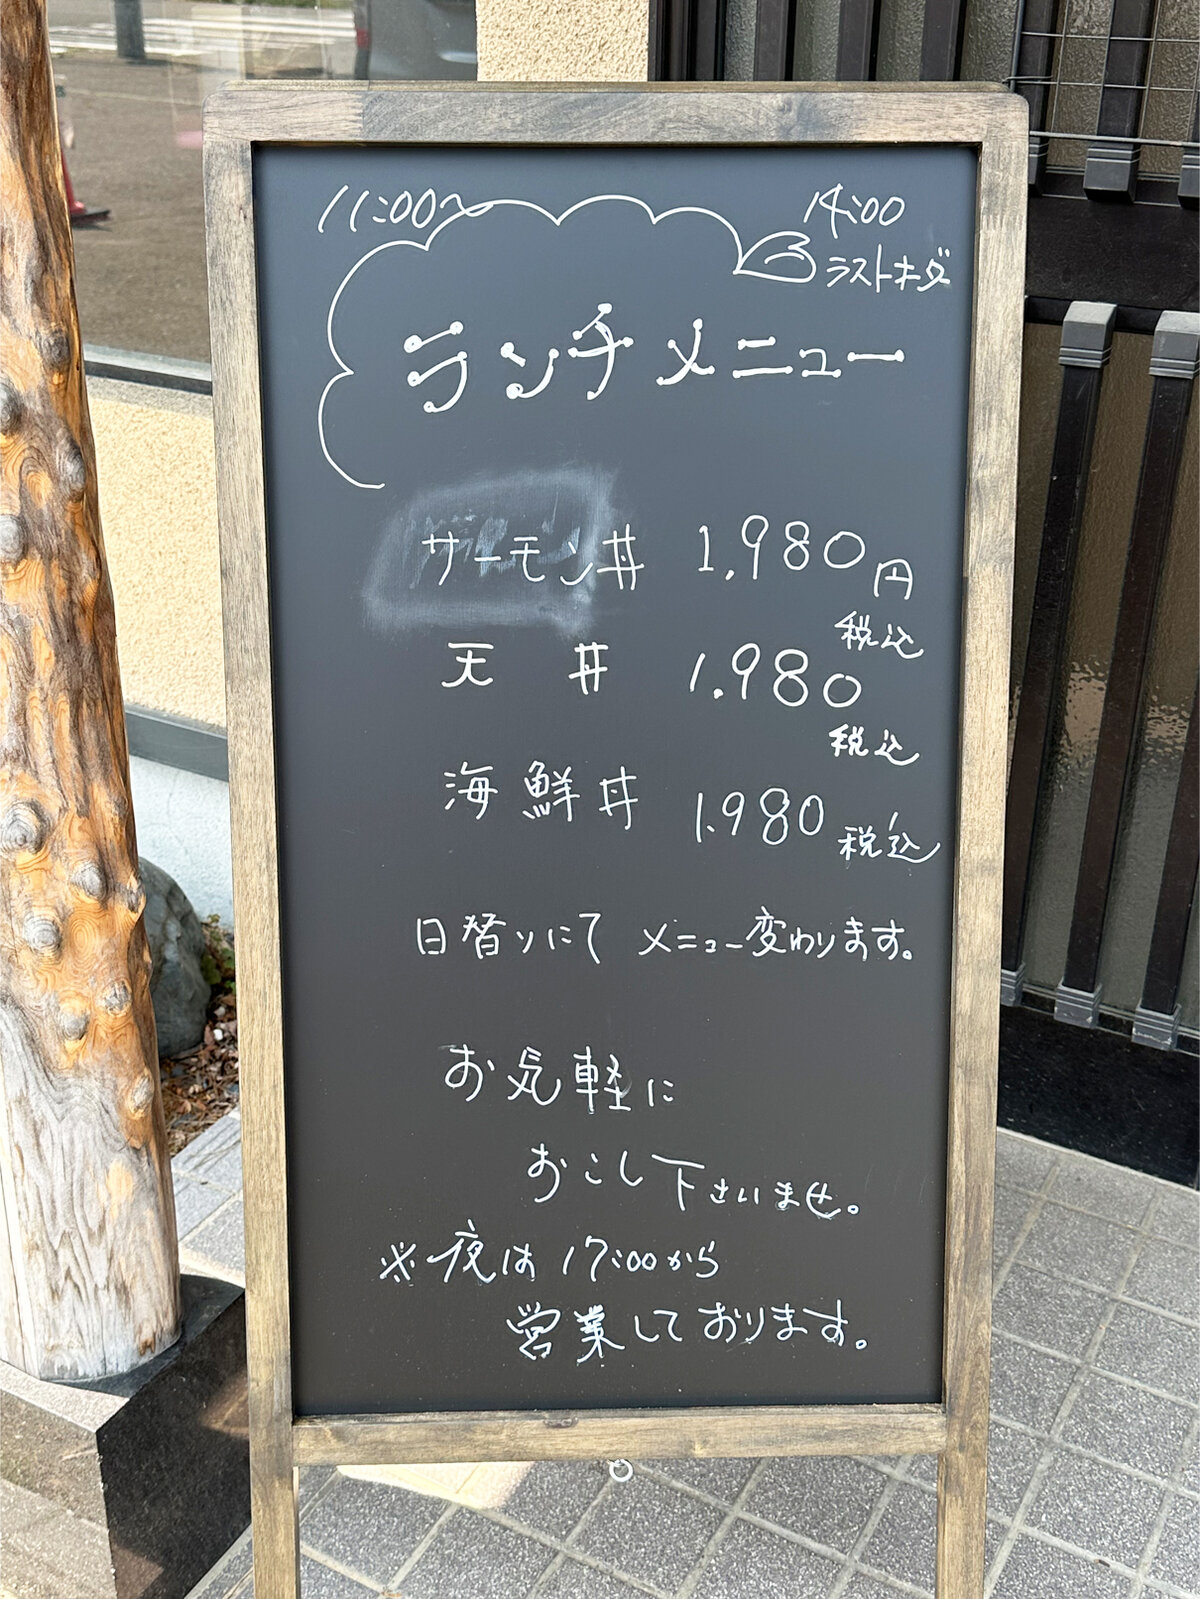 11:00〜 14:00
ラストオーダー
ランチメニュー
サーモン丼 1,980円
税込
天丼 1.980
税込
海鮮丼 1.980 税込
日替りにて メニュー変わります。
お気軽に
おこし下さいませ。
※夜は17:00から
営業しております。